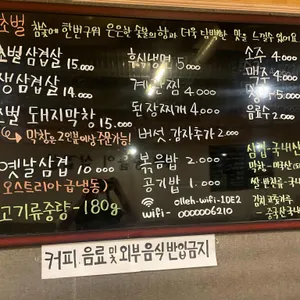 초벌 참숯에 한번 구워 은은한 숯불의 향과 더욱 담백한 맛을 느낄수 있어요
초벌 삼겹살 15.000
생삼겹살 14.000
초벌 돼지막창 15.000
막창은 2인분이상 주문가능!
옛날 삼겹 10.000
(오스트리아 급냉동)
고기류중량-180g
후식냉면 5.000
계란찜 4.000
된장찌개 4.000
버섯.감자추가 2.000
볶음밥 2.000
공기밥 1.000
olleh-wifi-1DE2
wifi- 0000006210
소주 4.000
맥주 4.000
음료수 2.000
삼겹-국내산
커피, 음료 및 외부음식 반입금지